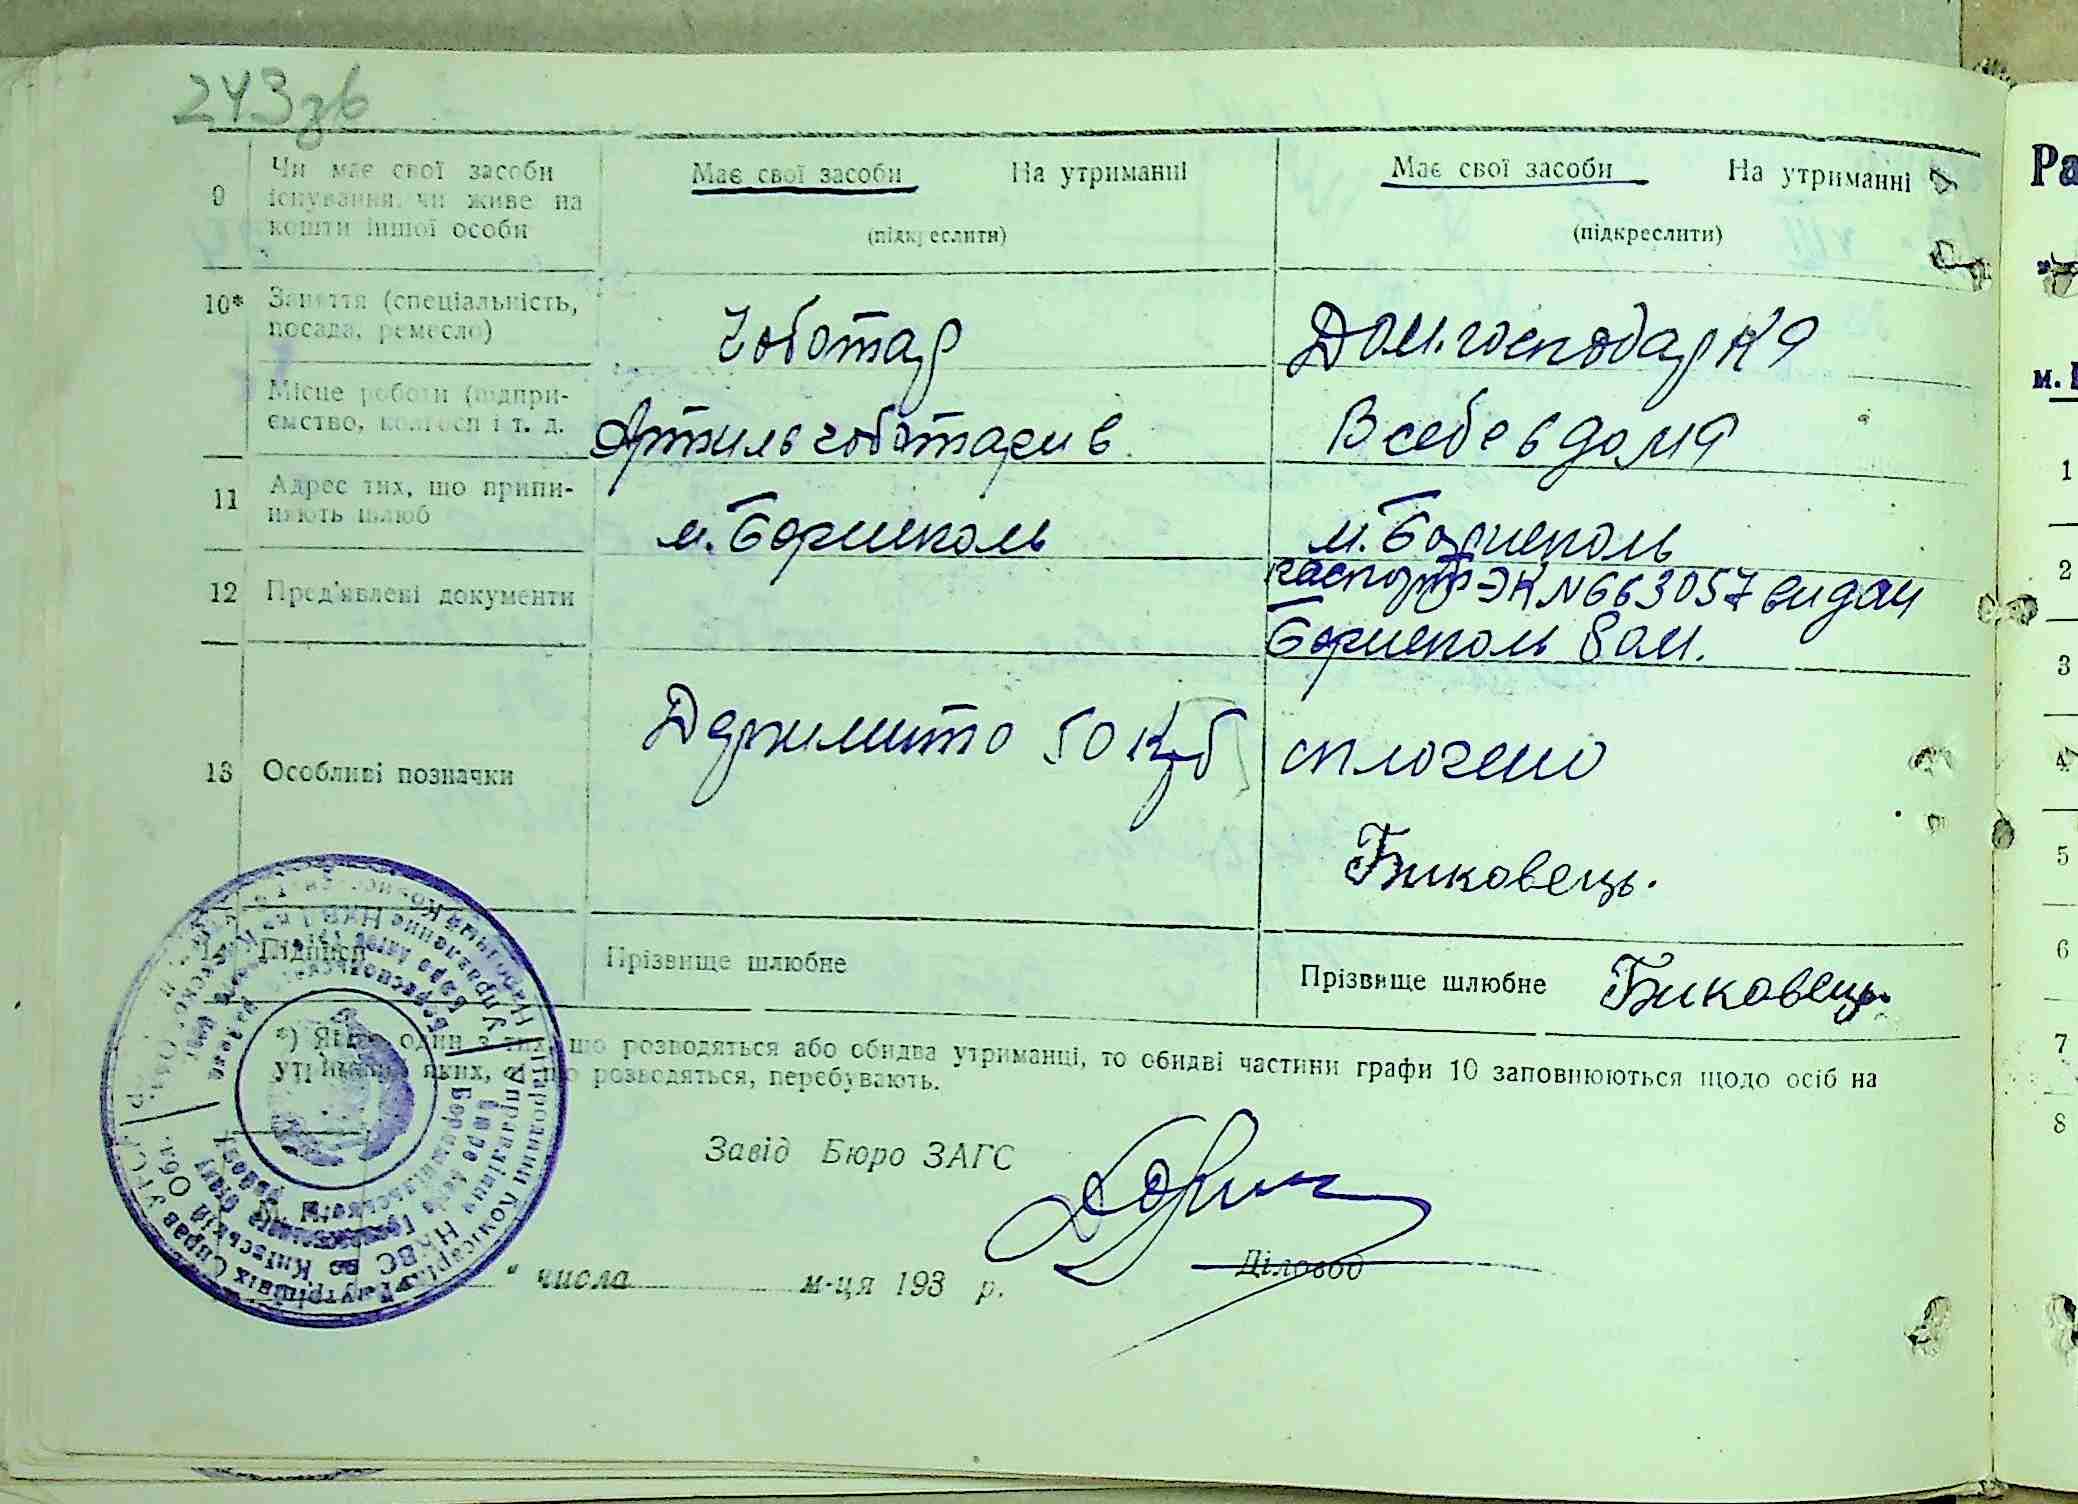 243зв
9 Чи має свої засоби існування, чи живе на кошти іншої особи
Має свої засоби На утриманні
(підкреслити)
Має свої засоби На утриманні
(підкреслити)
10* Заняття (спеціальність, посада, ремесло)
Чоботар
Дом.господарка
Місце роботи (підпри-
ємство, колгосп і т. д.
Артиль чоботарив
В себе в дома
11 Адрес тих, що припи-
няють шлюб
м. Бориспіль
м. Бориспіль
12 Пред'явлені документи
паспорт ЭК N 663057 видан
Бориспіль
13 Особливі позначки
Держмито 50 крб сплочено
Биковець.
Підписи
Прізвище шлюбне
Прізвище шлюбне Биковець.
*) Якщо один з тих, що розводяться або обидва утриманці, то обидві частини графи 10 заповнюються щодо осіб на
утриманні яких, ті що розводяться, перебувають.
Завід Бюро ЗАГС
Діловод
" числа м-ця 193 р.
Ра
м.
1
2
3
4
5
6
7
8